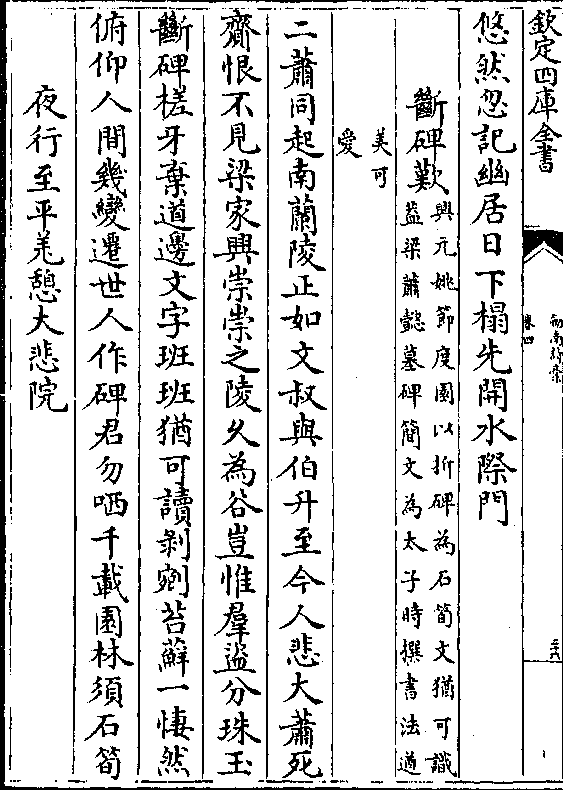 欽定四庫全書
劍南詩稾
卷四
悠然忽記幽居日下榻先開水際門
斷碑歎
興元姚節度園以折碑為石筍文猶可識
葢梁蕭懿墓碑簡文為太子時撰書法遒
美可
愛
二蕭同起南蘭陵正如文叔與伯升至今人悲大蕭死
齎恨不見梁家興崇崇之陵乆為谷豈惟羣盜分珠玉
斷碑槎牙棄道邊文字班班猶可讀剝剜苔蘚一悽然
俯仰人間幾變遷世人作碑君勿哂千載園林須石筍
夜行至平羌憩大悲院